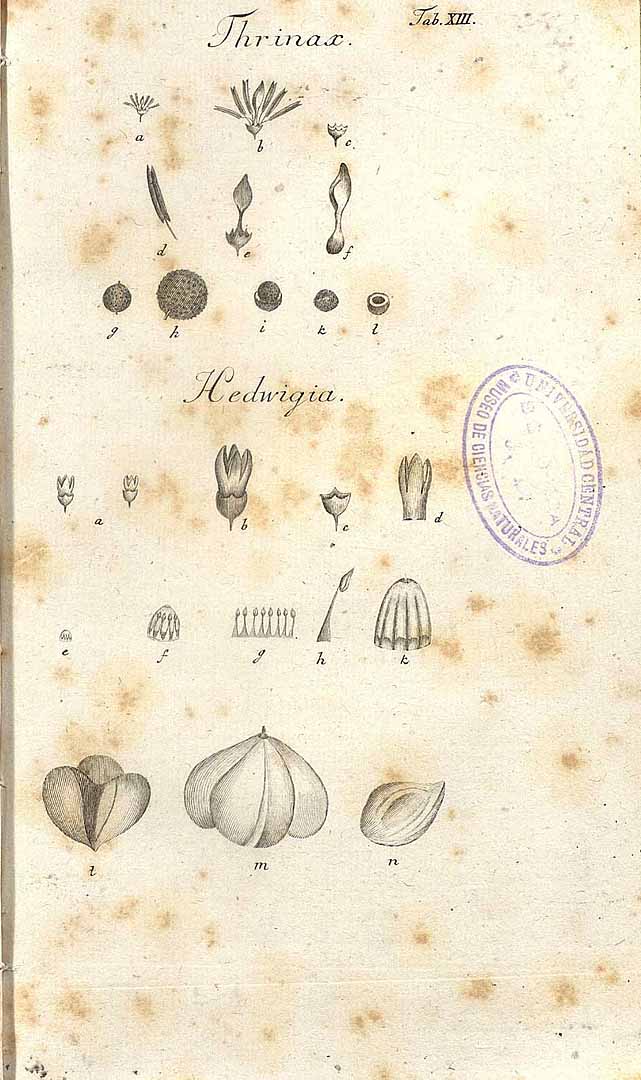 Tab. XIII.
Thrinax.
a b c.
d e f
g h i k l
Hedwigia.
a b c d
e f g h k
l m n
UNIVERSIDAD CENTRAL
MUSEO DE CIENCIAS NATURALES